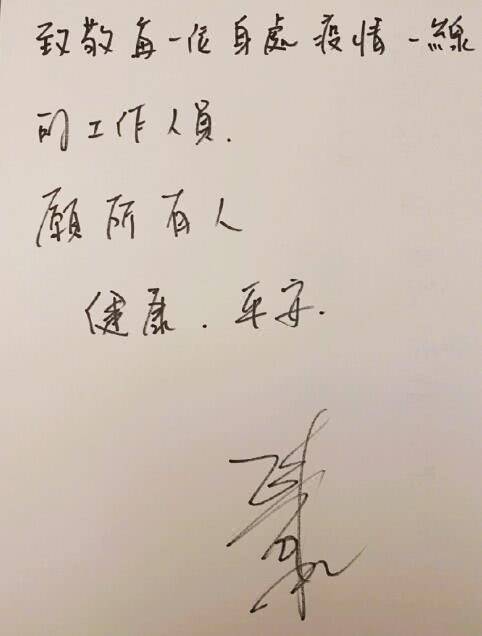 致敬每一位身處疫情一線
的工作人員.
願所有人
健康.平安.